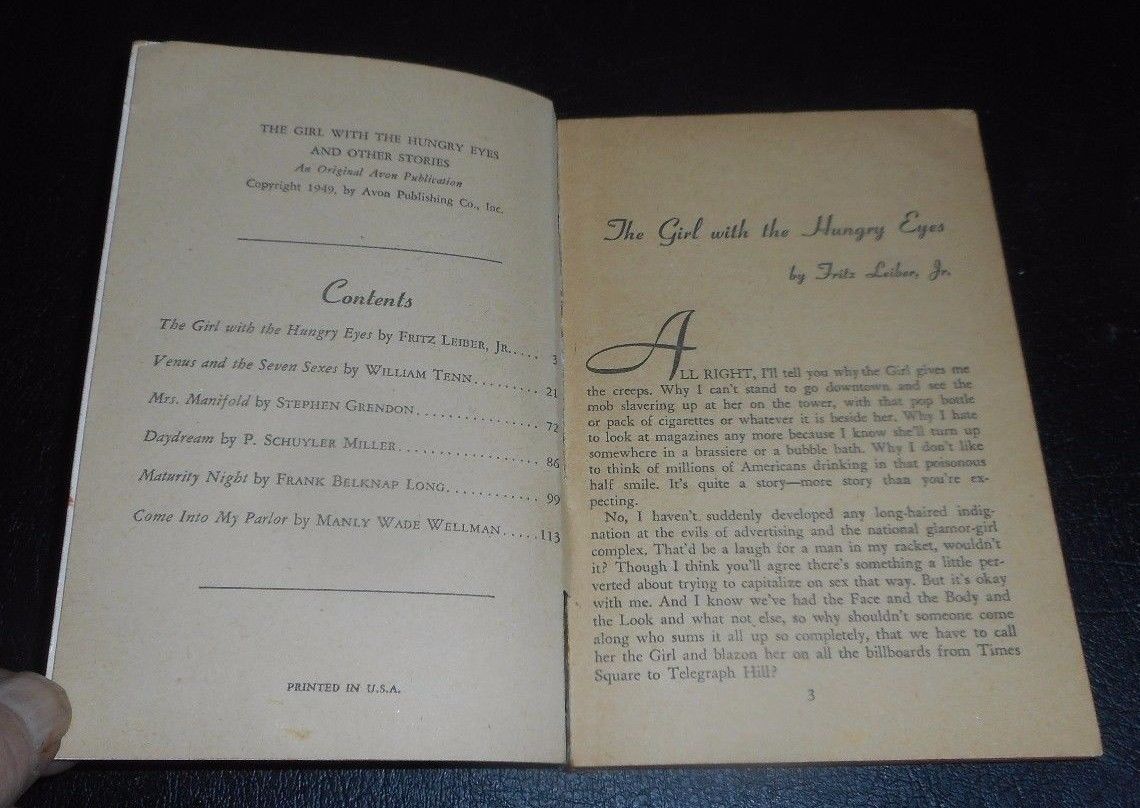 THE GIRL WITH THE HUNGRY EYES
AND OTHER STORIES
An Original Avon Publication
Copyright 1949, by Avon Publishing Co., Inc.
Contents
The Girl with the Hungry Eyes by FRITZ LEIBER, JR..... 3
Venus and the Seven Sexes by WILLIAM TENN......... 21
Mrs. Manifold by STEPHEN GRENDON.............. 72
Daydream by P. SCHUYLER MILLER................ 86
Maturity Night by FRANK BELKNAP LONG............ 99
Come Into My Parlor by MANLY WADE WELLMAN.....113
PRINTED IN U.S.A.
The Girl with the Hungry Eyes
by Fritz Leiber, Jr.
ALL RIGHT, I'll tell you why the Girl gives me
the creeps. Why I can't stand to go downtown and see the
mob slavering up at her on the tower, with that pop bottle
or pack of cigarettes or whatever it is beside her. Why I hate
to look at magazines any more because I know she'll turn up
somewhere in a brassiere or a bubble bath. Why I don't like
to think of millions of Americans drinking in that poisonous
half smile. It's quite a story—more story than you're ex-
pecting.
No, I haven't suddenly developed any long-haired indig-
nation at the evils of advertising and the national glamor-girl
complex. That'd be a laugh for a man in my racket, wouldn't
it? Though I think you'll agree there's something a little per-
verted about trying to capitalize on sex that way. But it's okay
with me. And I know we've had the Face and the Body and
the Look and what not else, so why shouldn't someone come
along who sums it all up so completely, that we have to call
her the Girl and blazon her on all the billboards from Times
Square to Telegraph Hill?
3